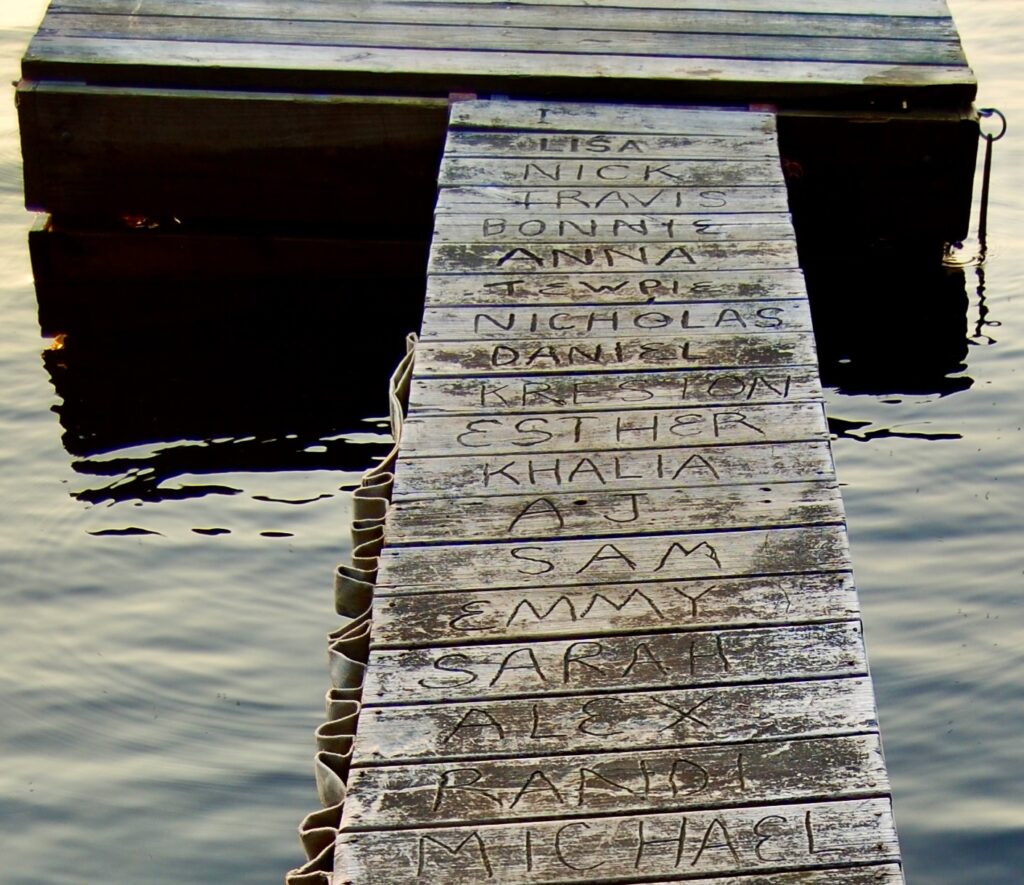 LISA
NICK
TRAVIS
BONNIE
ANNA
TEWPIE
NICHOLAS
DANIEL
KRESTON
ESTHER
KHALIA
A·J
SAM
EMMY
SARAH
ALEX
RANDI
MICHAEL